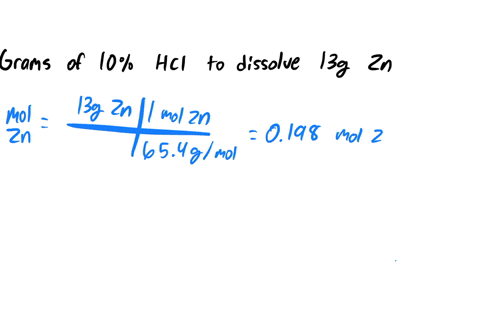 Grams of 10% HCl to dissolve 13g Zn
mol Zn = 13g Zn | 1 mol Zn
65.4g/mol
= 0.198 mol z